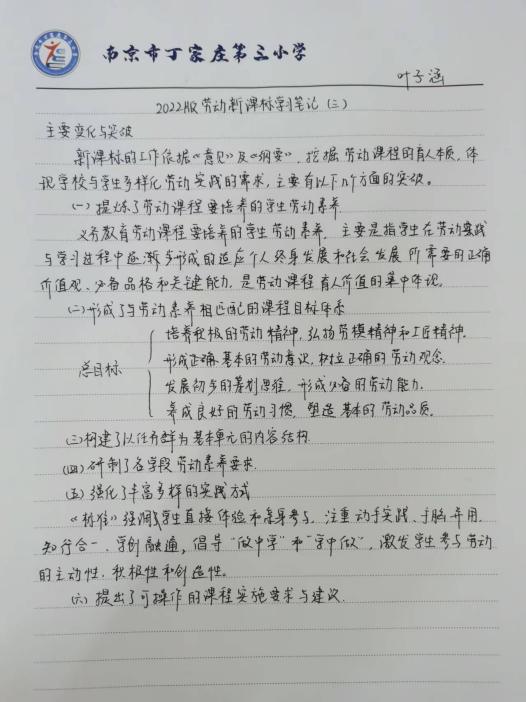 南京市丁家庄第三小学
叶子涵
2022版劳动新课标学习笔记(三)
主要变化与突破
新课标的工作依据《意见》及《纲要》,挖掘劳动课程的育人本质,体
现学校与学生多样化劳动实践的需求,主要有以下几个方面的突破。
(一)提炼了劳动课程要培养的学生劳动素养
义务教育劳动课程要培养的学生劳动素养,主要是指学生在劳动实践
与学习过程中逐渐步形成的适应个人终身发展和社会发展所需要的正确
价值观、必备品格和关键能力,是劳动课程育人价值的集中体现。
(二)形成了与劳动素养相匹配的课程目标体系
总目标
培养积极的劳动精神,弘扬劳模精神和工匠精神.
形成正确基本的劳动意识,树立正确的劳动观念.
发展初步的筹划思维,形成必备的劳动能力.
养成良好的劳动习惯,塑造基本的劳动品质。
(三)构建了以任务群为基本单元的内容结构.
(四)研制了各学段劳动素养要求.
(五)强化了丰富多样的实践方式
《标准》强调学生直接体验和亲身参与,注重动手实践、手脑并用,
知行合一、学创融通,倡导"做中学"和"学中做",激发学生参与劳动
的主动性、积极性和创造性。
(六)提出了可操作的课程实施要求与建议.